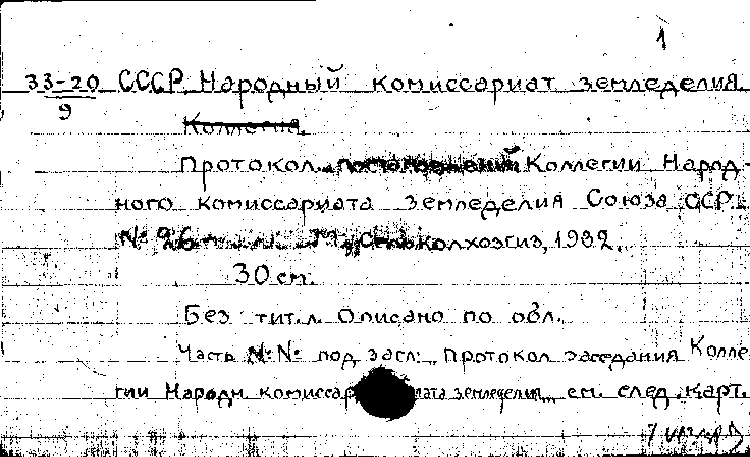 1
33-20 СССР. Народный комиссариат земледелия.
9
Коллегия.
Протокол Коллегии Народ-
ного комиссариата земледелия Союза ССР.
№ 26 колхозгиз, 1932.
30 см.
Без тит. л. Описано по обл.
Часть №№ под загл: „Протокол заседания Колле
гии Народн. комиссариата земледелия„ см. след. карт.